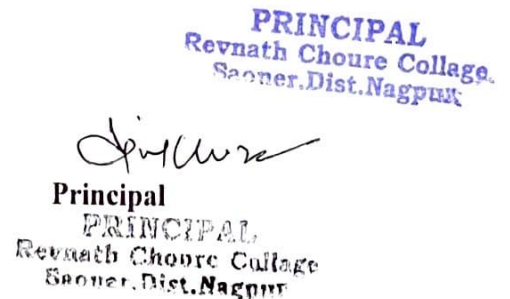 PRINCIPAL
Revnath Choure Collage
Saoner.Dist.Nagpur
Principal
PRINCIPAL
Revnath Choure Collage
Saoner.Dist.Nagpur